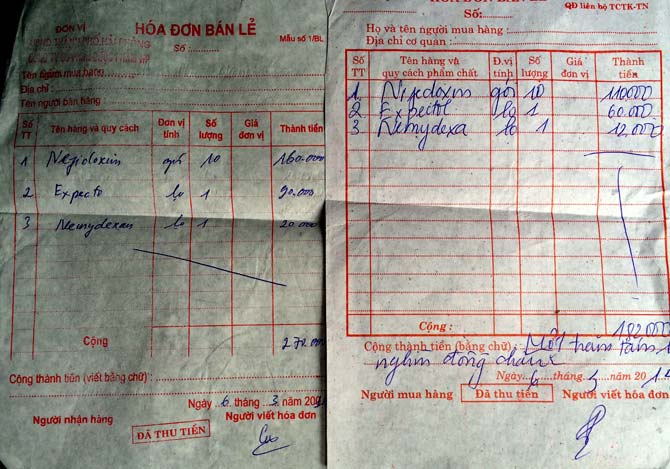 ĐƠN VỊ
HÓA ĐƠN BÁN LẺ
Mẫu số 1/BL
Số:
Tên người mua hàng:
Địa chỉ:
Tên người bán hàng:
Số TT Tên hàng và quy cách Đơn vị tính Số lượng Giá đơn vị Thành tiền
1 gói 10 160.000
2 Expecto lọ 1 90.000
3 Nemydexan lọ 1 20.000
Cộng 270.000
Cộng thành tiền (viết bằng chữ):
Ngày 6 tháng 3 năm
Người nhận hàng Người viết hóa đơn
ĐÃ THU TIỀN
HÓA ĐƠN BÁN LẺ
QĐ liên bộ TCTK-TN
Số:
Họ và tên người mua hàng:
Địa chỉ cơ quan:
Số TT Tên hàng và quy cách phẩm chất Đ.vị tính Số lượng Giá đơn vị Thành tiền
1 gói 10 110.000
2 Expecto lọ 1 60.000
3 Nemydexa lọ 1 12.000
Cộng: 182.000
Cộng thành tiền (bằng chữ): Một trăm tám
nghìn đồng chẵn
Ngày 6 tháng 3 năm 2014
Người mua hàng ĐÃ THU TIỀN Người viết hóa đơn